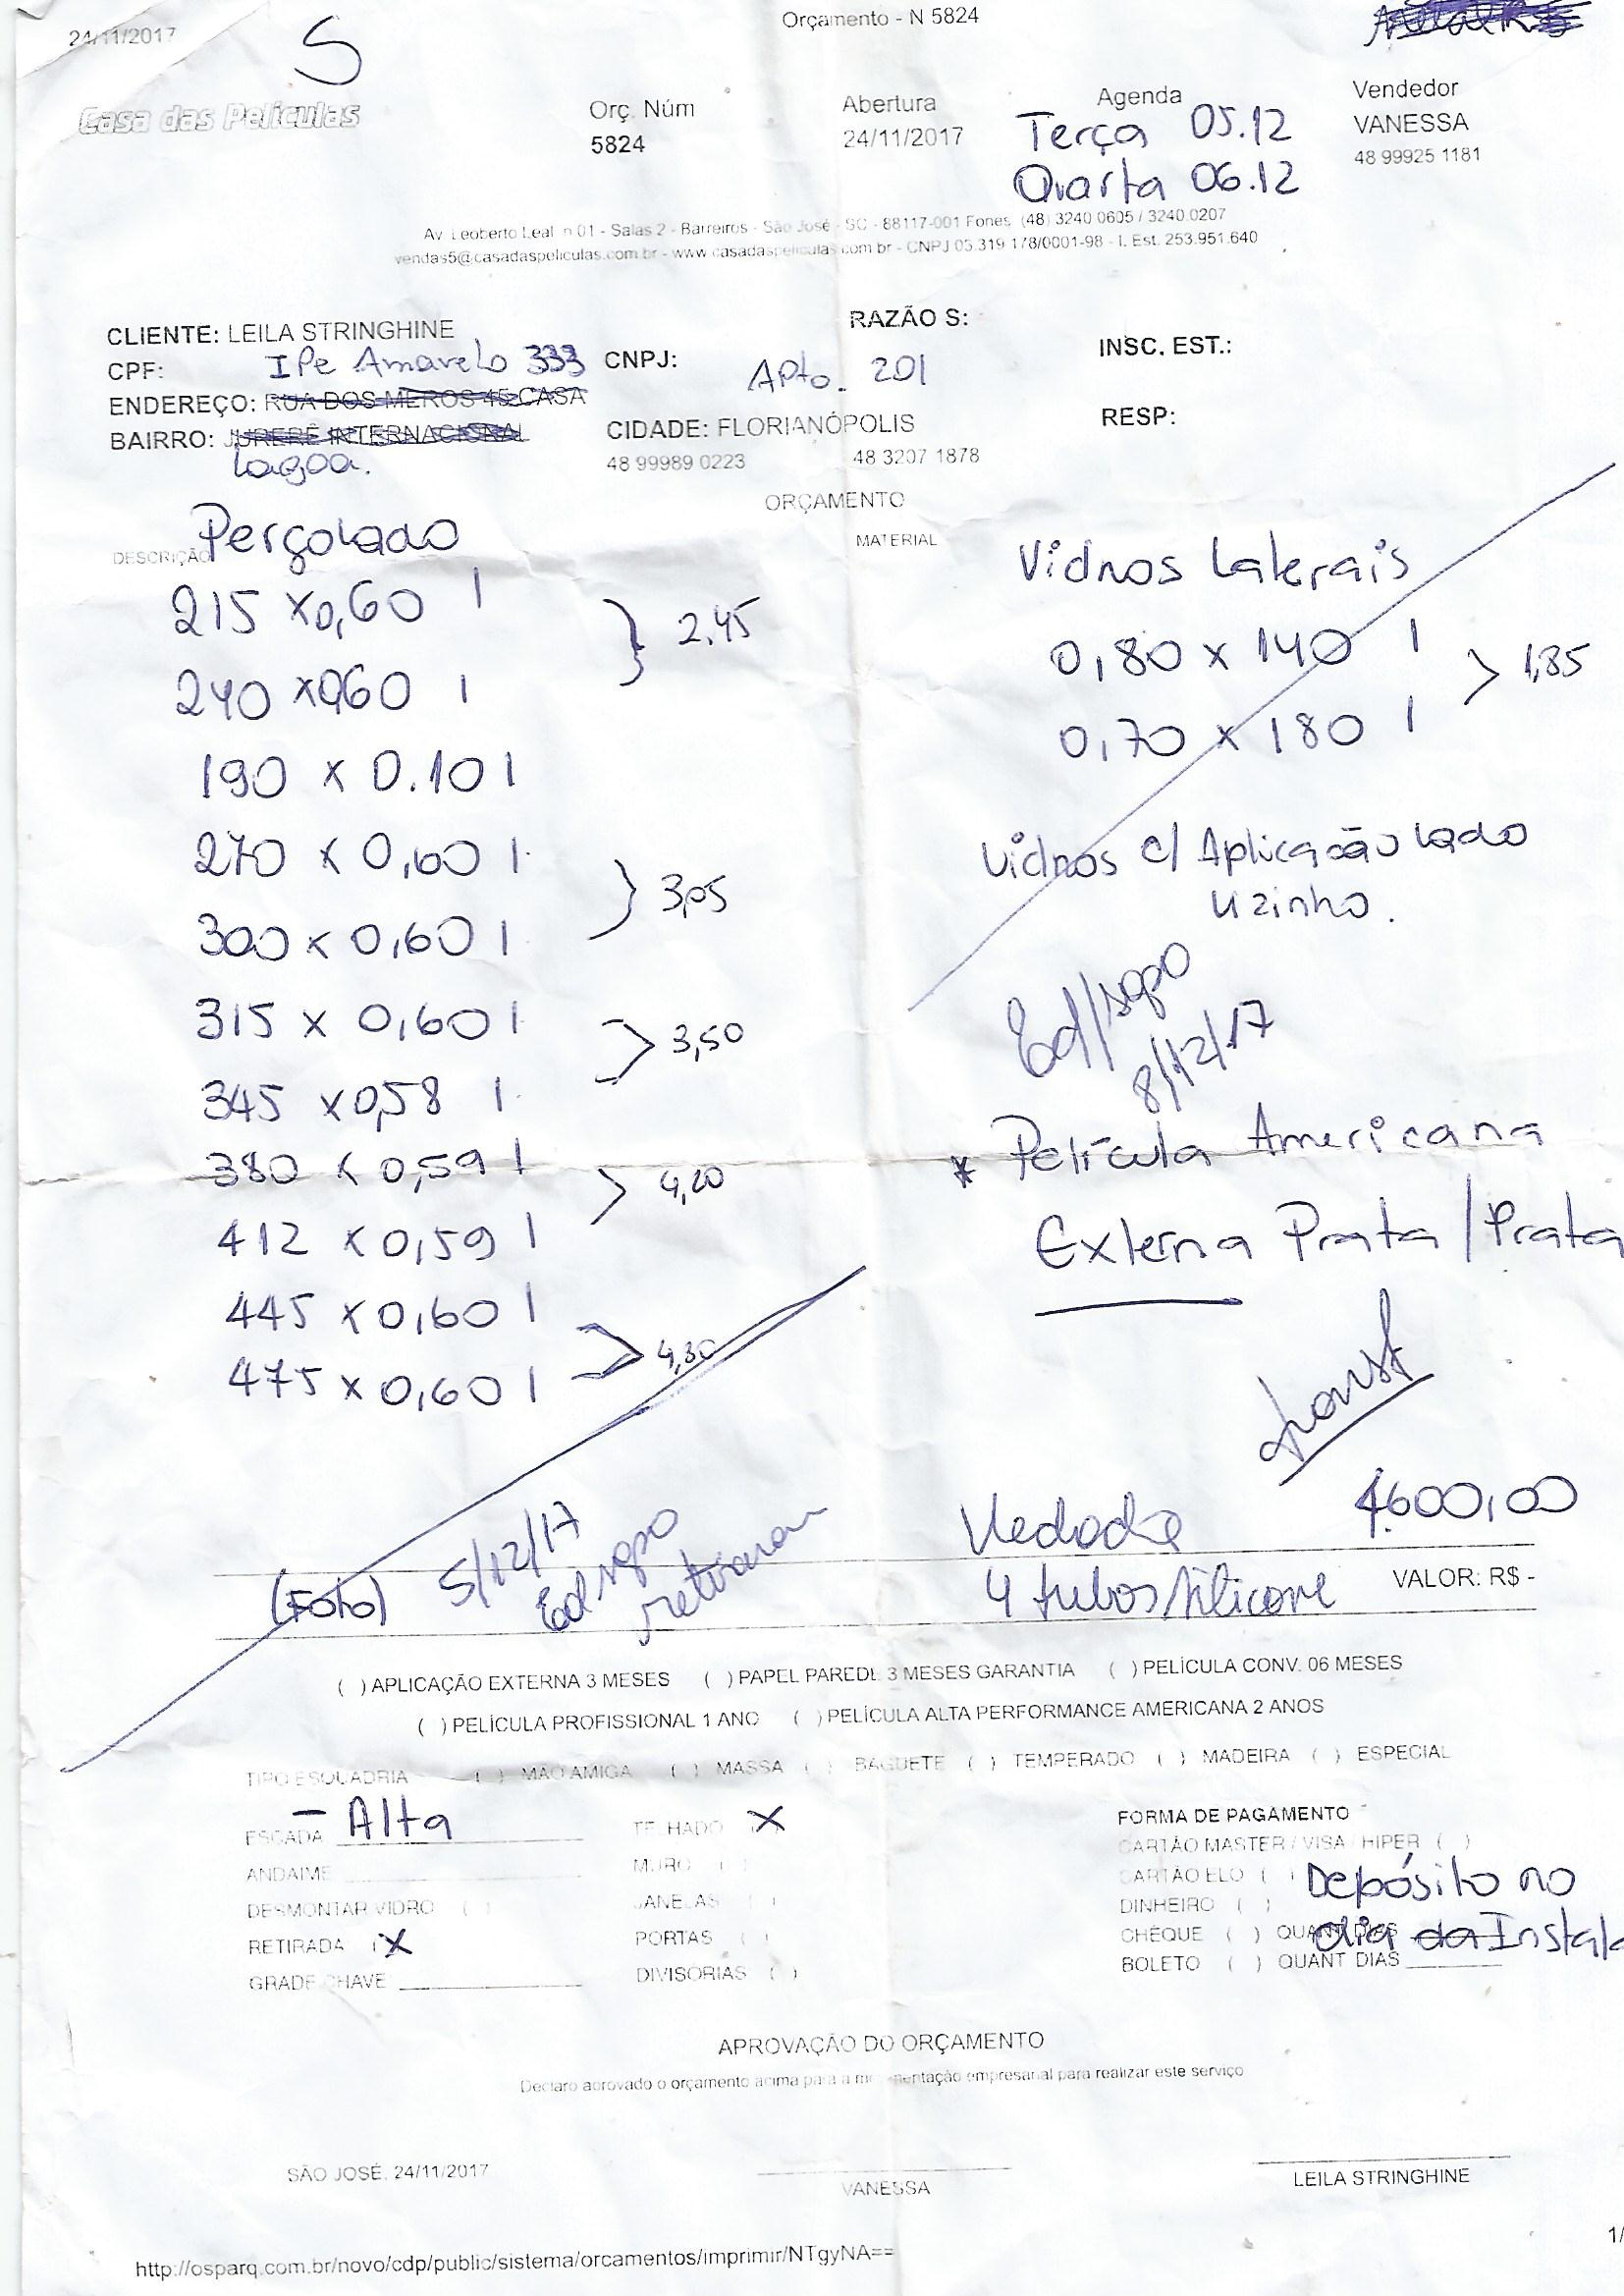 24/11/2017
Orçamento - N 5824
S
Casa das Películas
Orç. Núm
5824
Abertura
24/11/2017
Agenda
Terça 05.12
Quarta 06.12
Vendedor
VANESSA
48 99925 1181
Av. Leoberto Leal, n 01 - Salas 2 - Barreiros - São José - SC - 88117-001 Fones (48) 3240 0605 / 3240.0207
vendas5@casadaspeliculas.com.br - www.casadaspeliculas.com.br - CNPJ 05.319.178/0001-98 - I. Est. 253.951.640
CLIENTE: LEILA STRINGHINE
RAZÃO S:
CPF:
IPe Amarelo 333
CNPJ:
Apto. 201
INSC. EST.:
ENDEREÇO: RUA DOS MEROS 45 CASA
BAIRRO: JURERÊ INTERNACIONAL
Lagoa.
CIDADE: FLORIANÓPOLIS
RESP:
48 99989 0223
48 3207 1878
ORÇAMENTO
DESCRIÇÃO
Pergolado
MATERIAL
215 x0,60 1
240 x060 1
2.45
190 x 0.10 1
270 x 0,60 1
300 x 0,60 1
3,05
315 x 0,60 1
345 x0,58 1
3,50
380 x 0,59 1
412 x 0,59 1
4,20
445 x 0,60 1
475 x 0,60 1
4,80
Vidros Laterais
0,80 x 140 1
0,70 x 180 1
1,85
Vidros c/ Aplicação lado
Vizinho.
8/12/17
* Película Americana
Externa Prata / Prata
4.600,00
4 tubos silicone
VALOR: R$ -
(Foto)
5/12/17
( ) APLICAÇÃO EXTERNA 3 MESES ( ) PAPEL PAREDE 3 MESES GARANTIA ( ) PELÍCULA CONV. 06 MESES
( ) PELÍCULA PROFISSIONAL 1 ANO ( ) PELÍCULA ALTA PERFORMANCE AMERICANA 2 ANOS
TIPO ESQUADRIA ( ) MÃO AMIGA ( ) MASSA ( ) BAGUETE ( ) TEMPERADO ( ) MADEIRA ( ) ESPECIAL
ESCADA - Alta
TELHADO (X)
ANDAIME
MURO ( )
DESMONTAR VIDRO ( )
JANELAS ( )
RETIRADA (X)
PORTAS ( )
GRADE CHAVE
DIVISORIAS ( )
FORMA DE PAGAMENTO
CARTÃO MASTER / VISA / HIPER ( )
CARTÃO ELO ( )
DINHEIRO ( )
CHEQUE ( ) QUANT DIAS
BOLETO ( ) QUANT DIAS
Depósito no
dia da Instala
APROVAÇÃO DO ORÇAMENTO
Declaro aprovado o orçamento acima para a movimentação empresarial para realizar este serviço
SÃO JOSÉ, 24/11/2017
VANESSA
LEILA STRINGHINE
1/
http://osparq.com.br/novo/cdp/public/sistema/orcamentos/imprimir/NTgyNA==